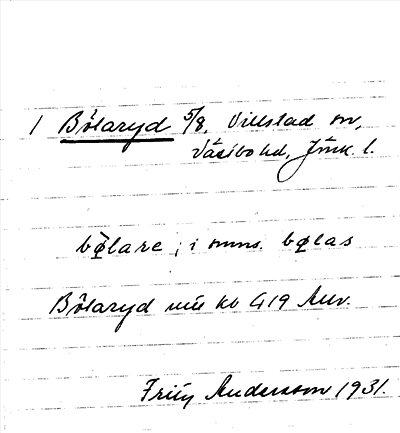 1 Bölaryd 5/8, Villstad sn,
Västbo hd, Jönk. l.
bø̀lare, i smns. bølas
Bölaryd utu kb G19 Anv.
Fritz Andersson 1931.